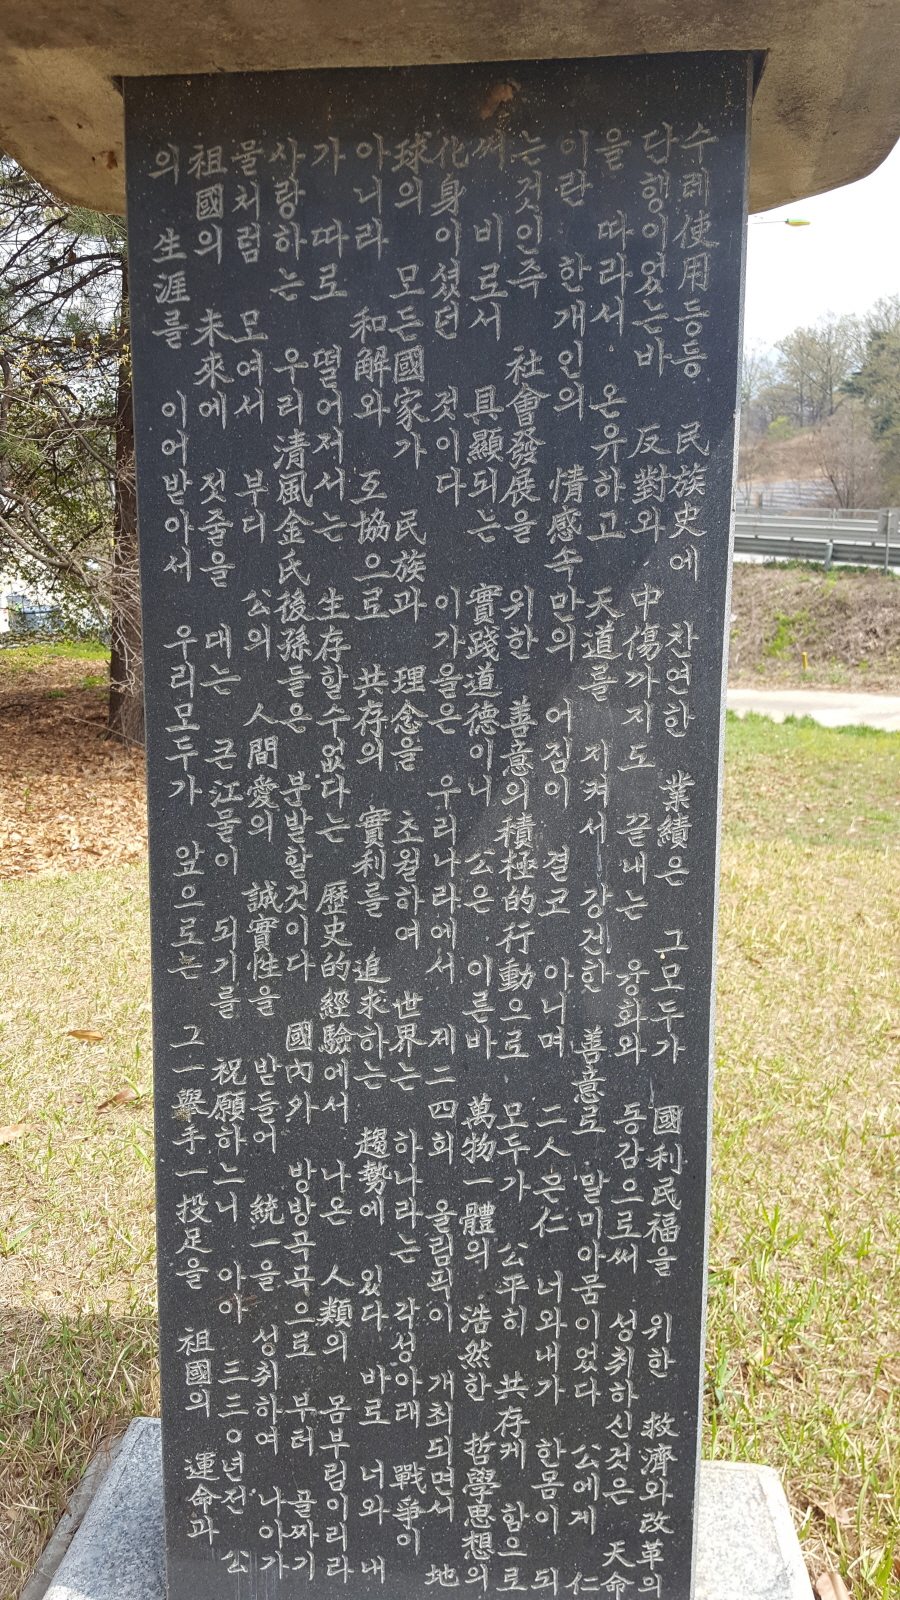 수레使用등등 民族史에 찬연한 業績은 그모두가 國利民福을 위한 救濟와改革의
단행이었는바 反對와 中傷까지도 끝내는 융화와 동감으로써 성취하신것은 天命
을 따라서 온유하고 天道를 지켜서 강건한 善意로 말미아뭄이었다 公에게 仁
이란 한개인의 情感속만의 어짐이 결코 아니며 二人은仁 너와내가 한몸이 되
는것인즉 社會發展을 위한 善意의積極的行動으로 모두가 公平히 共存케 함으로
써 비로서 具顯되는 實踐道德이니 公은 이른바 萬物一體의 浩然한 哲學思想의
化身이셨던 것이다 이가을은 우리나라에서 제二四회 올림픽이 개최되면서 地
球의 모든國家가 民族과 理念을 초월하여 世界는 하나라는 각성아래 戰爭이
아니라 和解와 互協으로 共存의 實利를 追求하는 趨勢에 있다 바로 너와 내
가 따로 떨어저서는 生存할수없다는 歷史的經驗에서 나온 人類의 몸부림이리라
사랑하는 우리清風金氏後孫들은 분발할것이다 國內外 방방곡곡으로 부터 골짜기
물처럼 모여서 부디 公의 人間愛의 誠實性을 받들어 統一을 성취하여 나아가
祖國의 未來에 젓줄을 대는 큰江물이 되기를 祝願하느니 아아 三三○년전 公
의 生涯를 이어받아서 우리모두가 앞으로는 그一擧手一投足을 祖國의 運命과